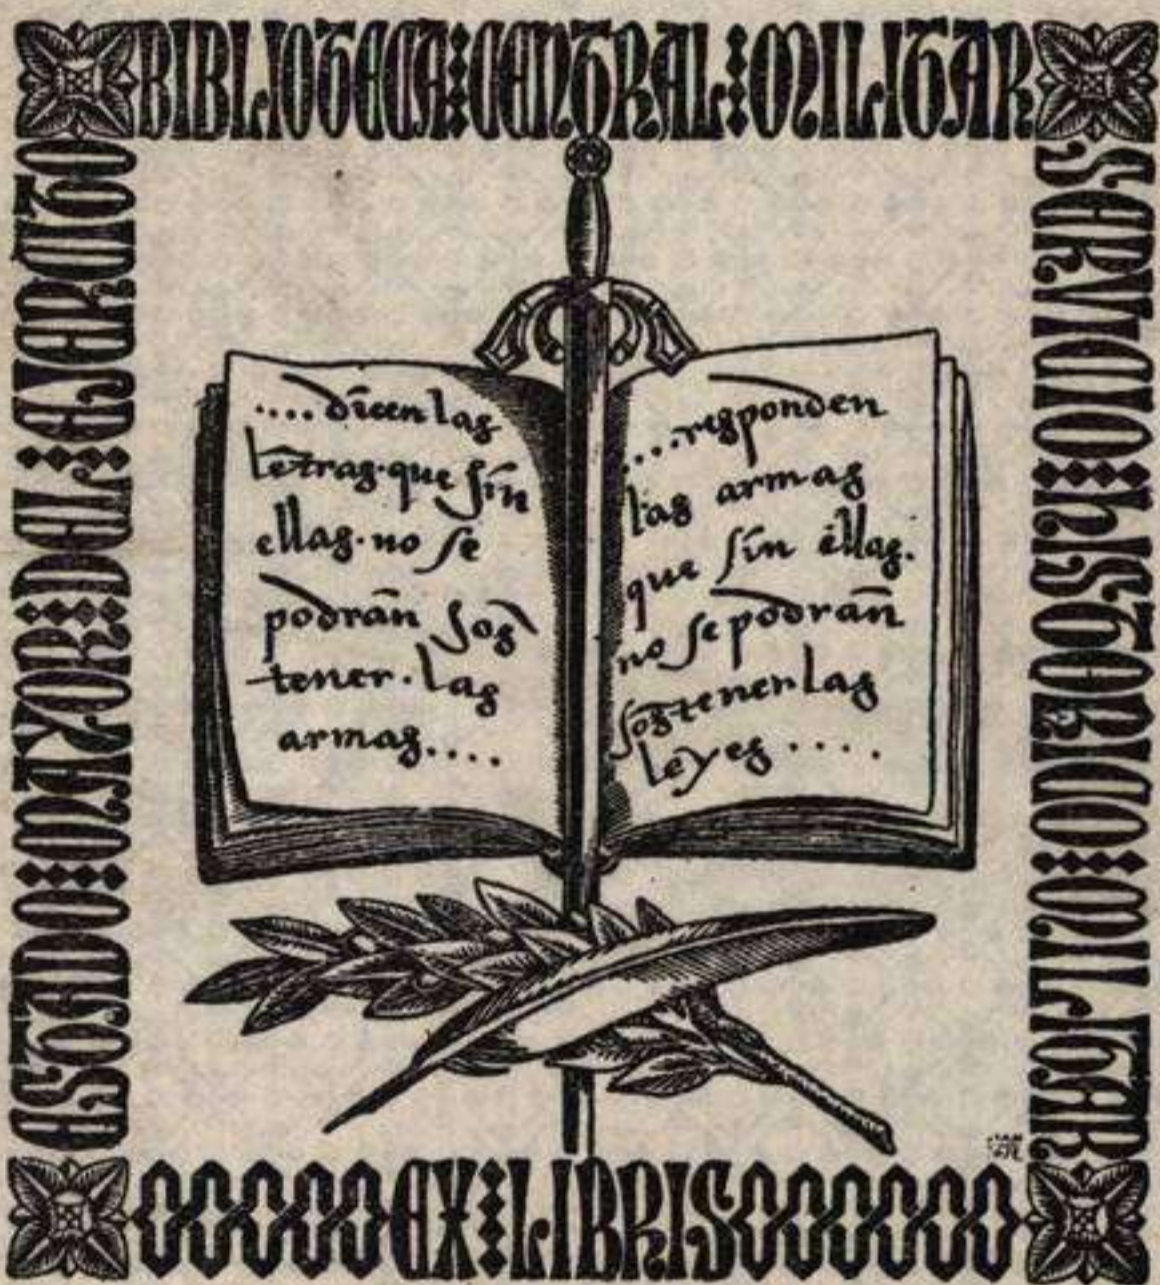 BIBLIOTECA CENTRAL MILITAR
SERVICIO HISTORICO MILITAR
ESTADO MAYOR DEL EJERCITO
....dicen las
letras que sin
ellas no se
podrān sos
tener las
armas....
....responden
las armas
que sin ellas
no se podrān
sostener las
leyes ....
EX LIBRIS